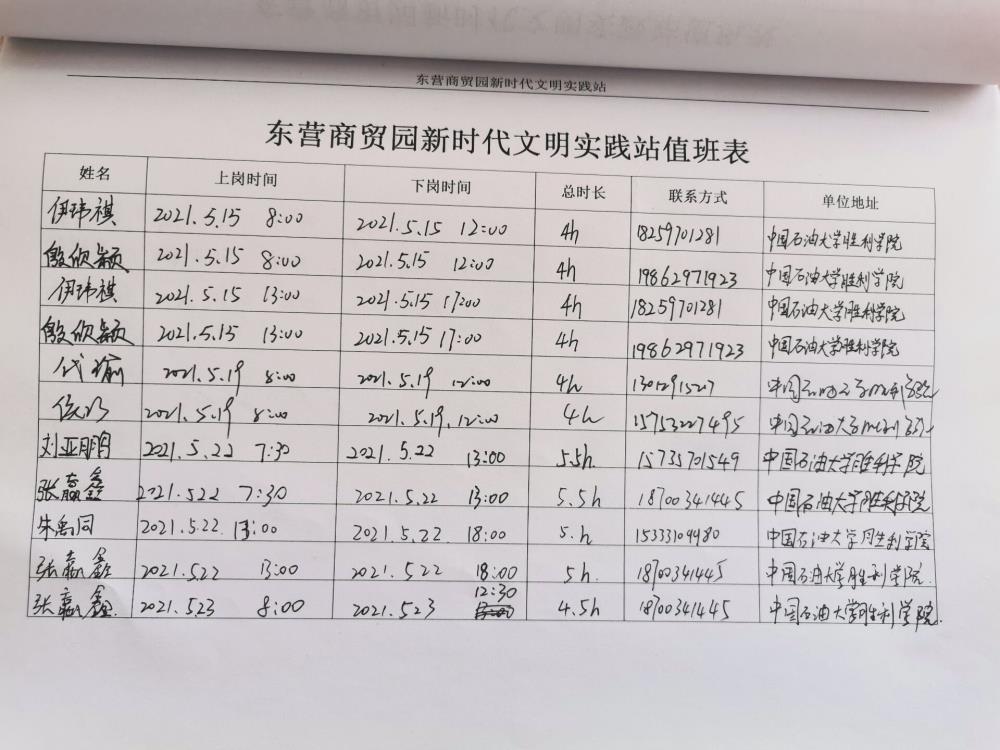 东营商贸园新时代文明实践站
东营商贸园新时代文明实践站值班表
姓名 上岗时间 下岗时间 总时长 联系方式 单位地址
伊玮祺 2021.5.15 8:00 2021.5.15 12:00 4h 18259701281 中国石油大学胜利学院
殷欣颖 2021.5.15 8:00 2021.5.15 12:00 4h 19862971923 中国石油大学胜利学院
伊玮祺 2021.5.15 13:00 2021.5.15 17:00 4h 18259701281 中国石油大学胜利学院
殷欣颖 2021.5.15 13:00 2021.5.15 17:00 4h 19862971923 中国石油大学胜利学院
代瑜 2021.5.19 8:00 2021.5.19 12:00 4h 中国石油大学胜利学院
2021.5.19 8:00 2021.5.19, 12:00 4h 15753227495 中国石油大学胜利学院
刘亚鹏 2021.5.22 7:30 2021.5.22 13:00 5.5h 15735701549 中国石油大学胜利学院
张嬴鑫 2021.522 7:30 2021.5.22 13:00 5.5h 18700341445 中国石油大学胜利学院
朱禹同 2021.5.22 13:00 2021.5.22 18:00 5.h 15333109480 中国石油大学胜利学院
张嬴鑫 2021.522 13:00 2021.522 18:00 5h. 18700341445 中国石油大学胜利学院.
张嬴鑫. 2021.523 8:00 2021.523 12:30 4.5h 18700341445 中国石油大学胜利学院.